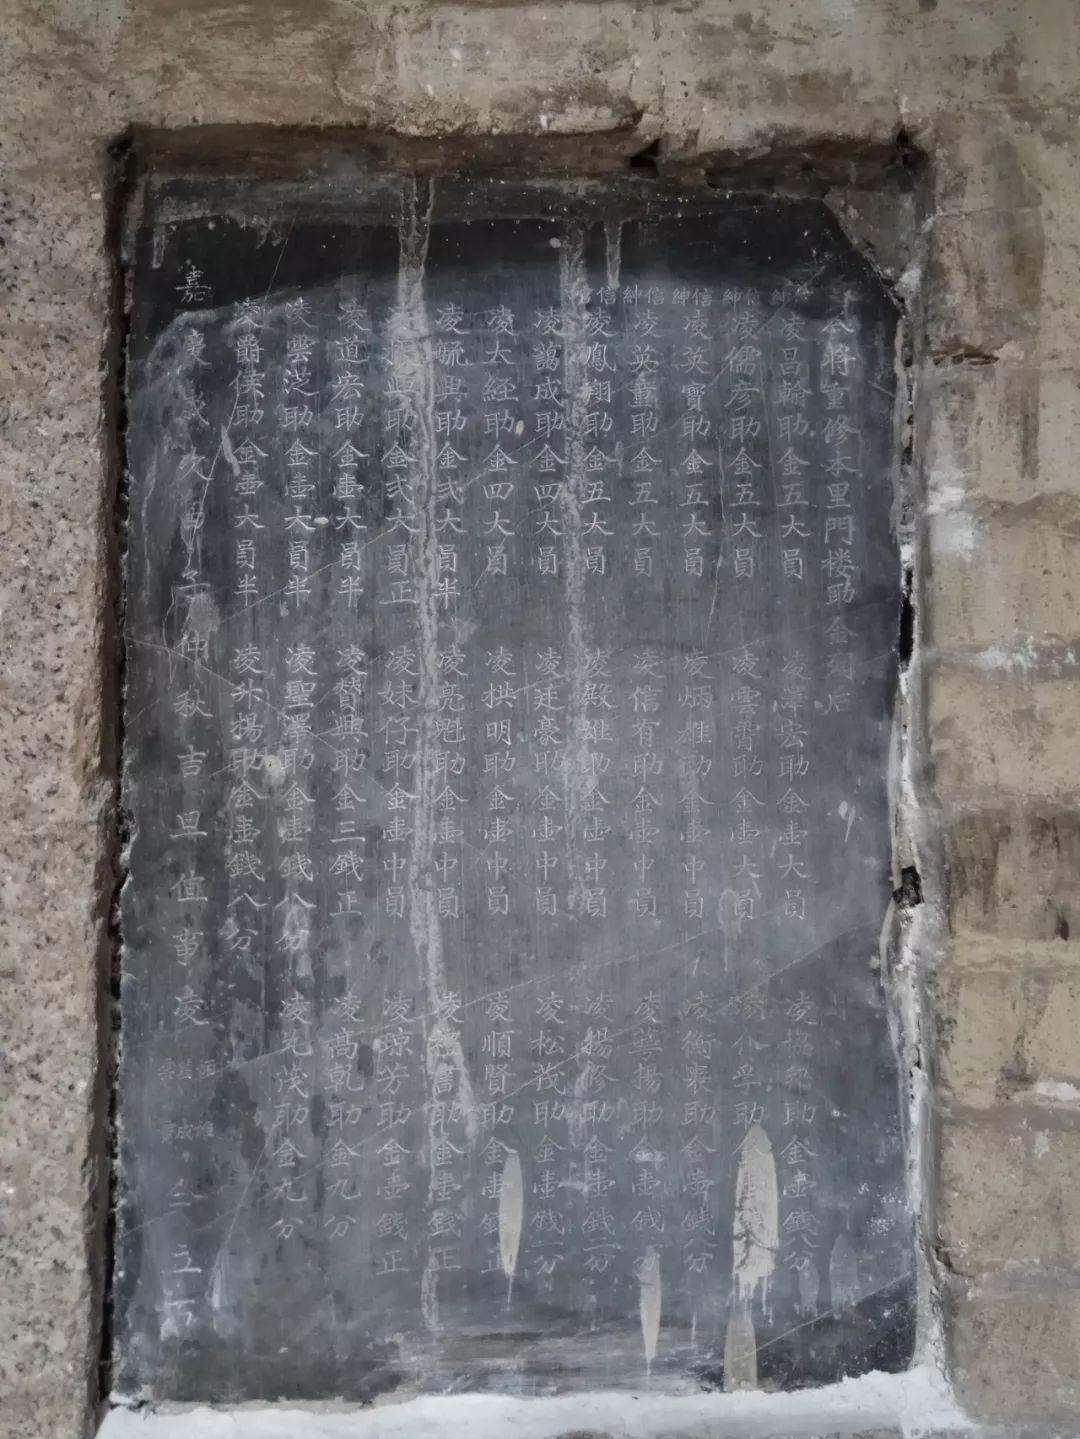 今将重修本里門楼助金刻后
紳 凌昌翰助金五大員 凌澤宏助金壹大員 凌 助金壹錢八分
紳信 凌儒彦助金五大員 凌雲霄助金壹大員 凌 孚助
紳信 凌英寶助金五大員 凌炳雄助金壹中員 凌衡襄助金壹錢八分
紳信 凌英重助金五大員 凌信有助金壹中員 凌萼揚助金壹錢 分
信 凌鳳翔助金五大員 凌殿雄助金壹中員 凌揚修助金壹錢二分
凌謁成助金四大員 凌廷豪助金壹中員 凌松茂助金壹錢一分
凌大経助金四大員 凌拱明助金壹中員 凌順賢助金壹錢正
凌毓興助金弍大員半 凌亮魁助金壹中員 凌 書助金壹錢正
凌 興助金弍大員正 凌妹仔助金壹中員 凌琼芳助金壹錢正
凌道宏助金壹大員半 凌贊興助金三錢正 凌高乾助金九分
凌雲芝助金壹大員半 凌聖澤助金壹錢八分 凌光茂助金九分
凌爵侯助金壹大員半 凌 揚助金壹錢八分
嘉慶歲次 子仲秋吉旦值事凌 成雄 立石